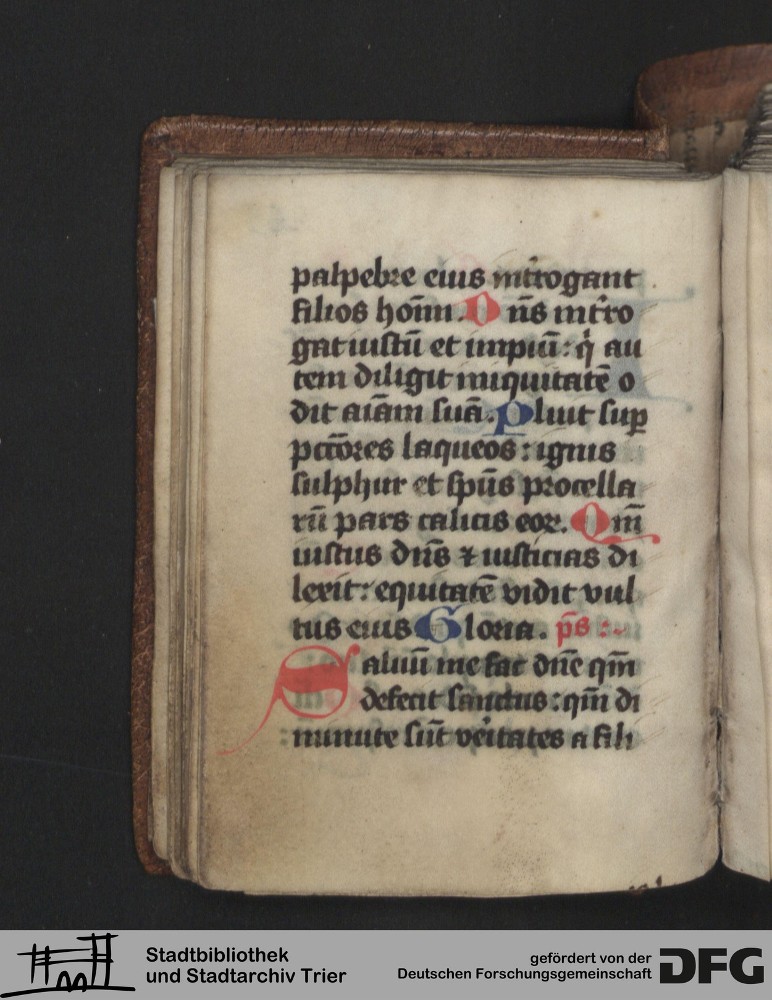 palpebre eius int̉rogant
filios hoīm. Dn̄s int̉ro
gat iustū et impiū: qͥ au
tem diligit iniquitatē o
dit aīam suā. Pluit sup̲
pctōres laqueos: ignis
sulphur et sp̄us procella
rū pars calicis eoꝝ. Qm̄
iustus dn̄s ⁊ iusticias di
lexit: equitatē vidit vul
tus eius Gloria. p̄s :~
Saluū me fac dn̄e qm̄
defecit sanctus: qm̄ di
minute sūt vẻitates a fili
Stadtbibliothek
und Stadtarchiv Trier
gefördert von der
Deutschen Forschungsgemeinschaft
DFG